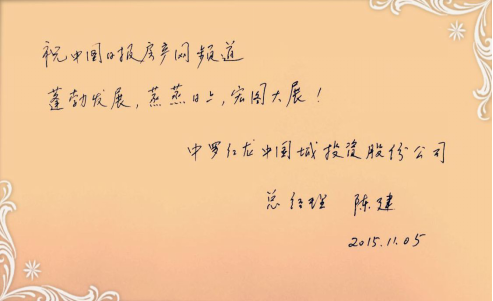 祝中国日报房产网频道
蓬勃发展，蒸蒸日上，宏图大展！
中罗红龙中国城投资股份公司
总经理 陈建
2015.11.05